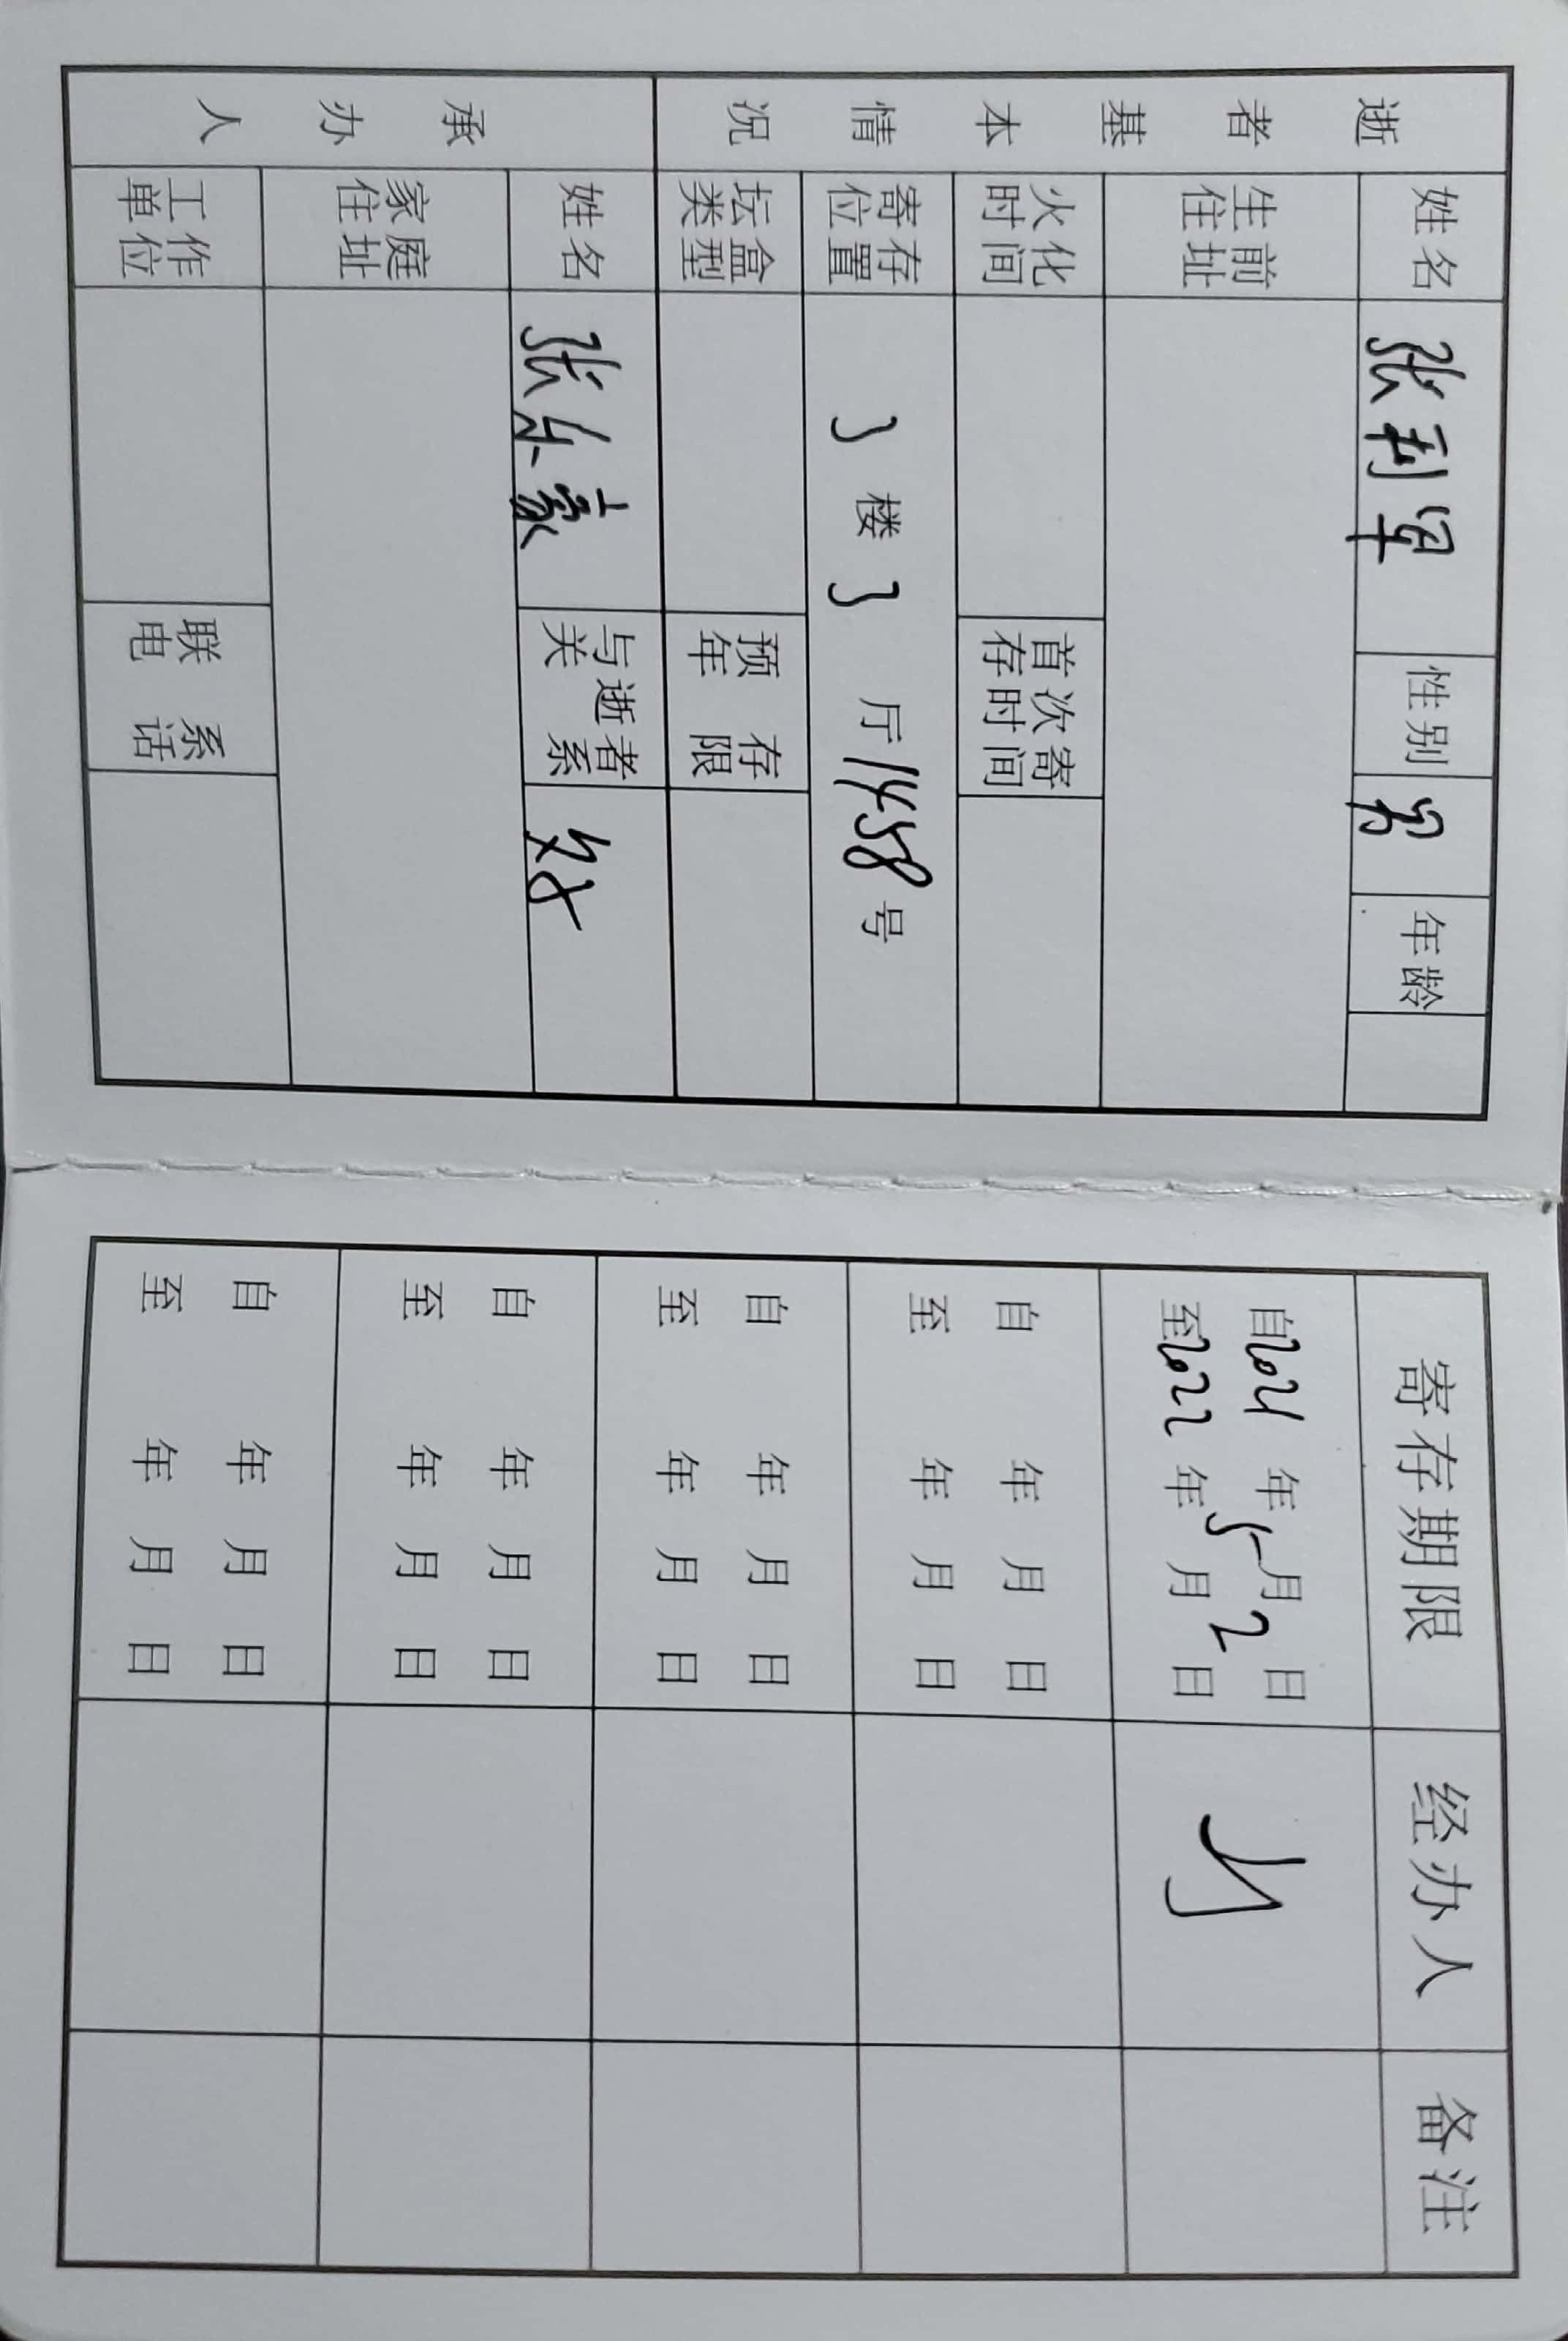 逝者基本情况
姓名 张利军 性别 男 年龄
生前住址
火化时间 首次寄存时间
寄存位置 3 楼 3 厅 1458 号
坛盒类型 预存年限
承办人
姓名 张乐豪 与逝者关系 父子
家庭住址
工作单位 联系电话
寄存期限 经办人 备注
自2021年5月2日
至2022年月日
自 年 月 日
至 年 月 日
自 年 月 日
至 年 月 日
自 年 月 日
至 年 月 日
自 年 月 日
至 年 月 日